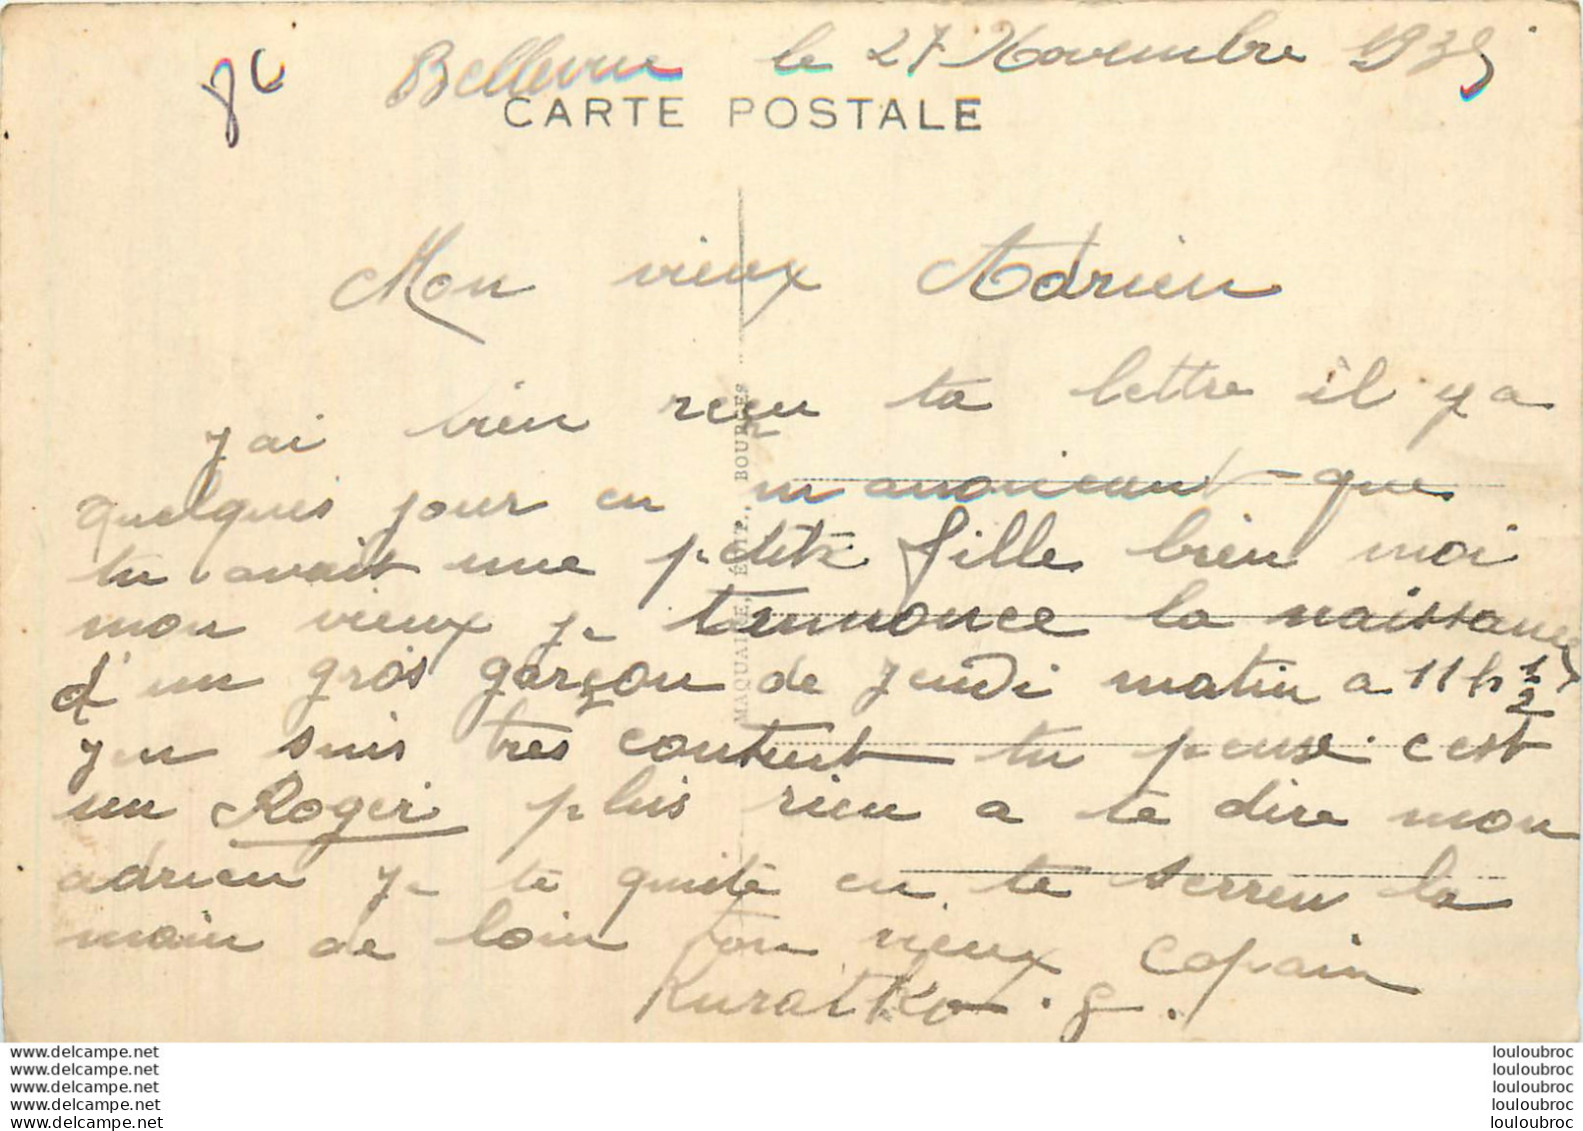 Bellevue le 27 Novembre 1935
CARTE POSTALE
Mon vieux Adrien
j'ai bien reçu ta lettre il y a
quelques jour en m anonceant que
tu avait une petite fille bien moi
mon vieux je tennonce la naissance
d'un gros garçon de jeudi matin a 11 h 1/2
j'en suis très content tu pense c est
un Roger plus rien a te dire mon
adrien je te quite en te serren la
main de loin ton vieux copain
Kuratko. G.
MAQUAIRE, ÉDIT., BOURGES
www.delcampe.net
www.delcampe.net
www.delcampe.net
www.delcampe.net
www.delcampe.net
louloubroc
louloubroc
louloubroc
louloubroc
louloubroc